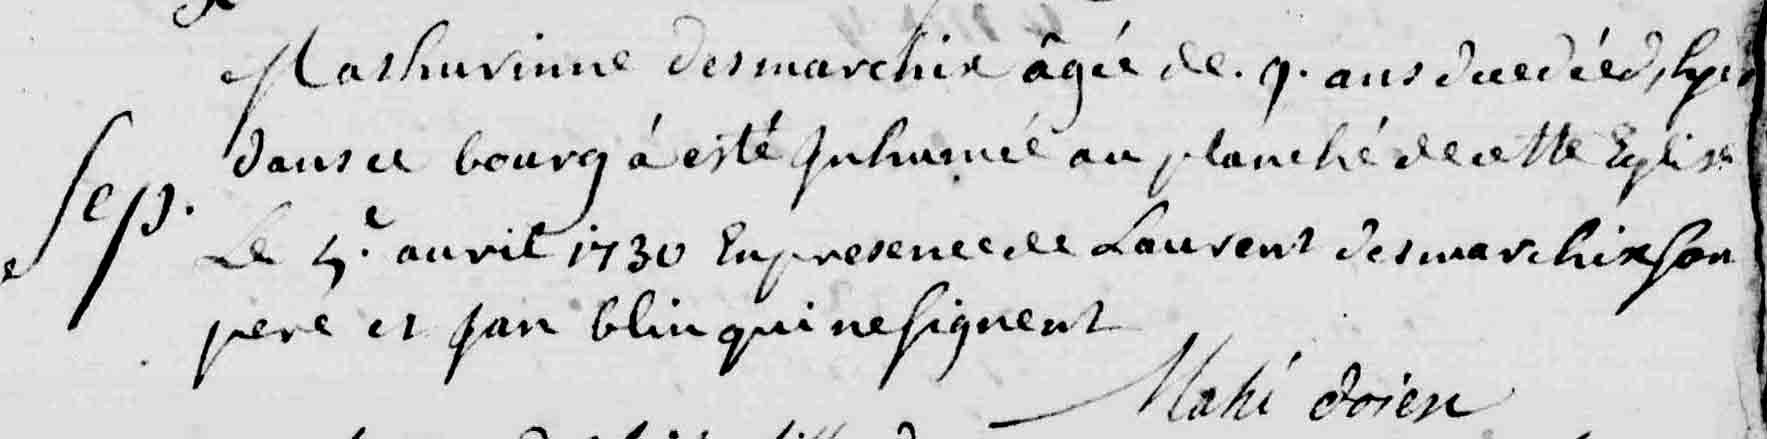 Mathurinne desmarchix âgée de .9. ans decedée d'hyer
dans ce bourg á esté Inhumée au planché de cette Eglise
Sep. Le 5.e auvril 1730 En presence de Laurent desmarchix son
pere et Jan blin qui ne signent
Mahé doien